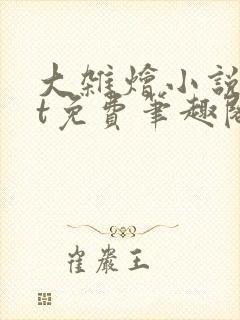 大雜燴小說
t免費筆趣閣
崔嚴王